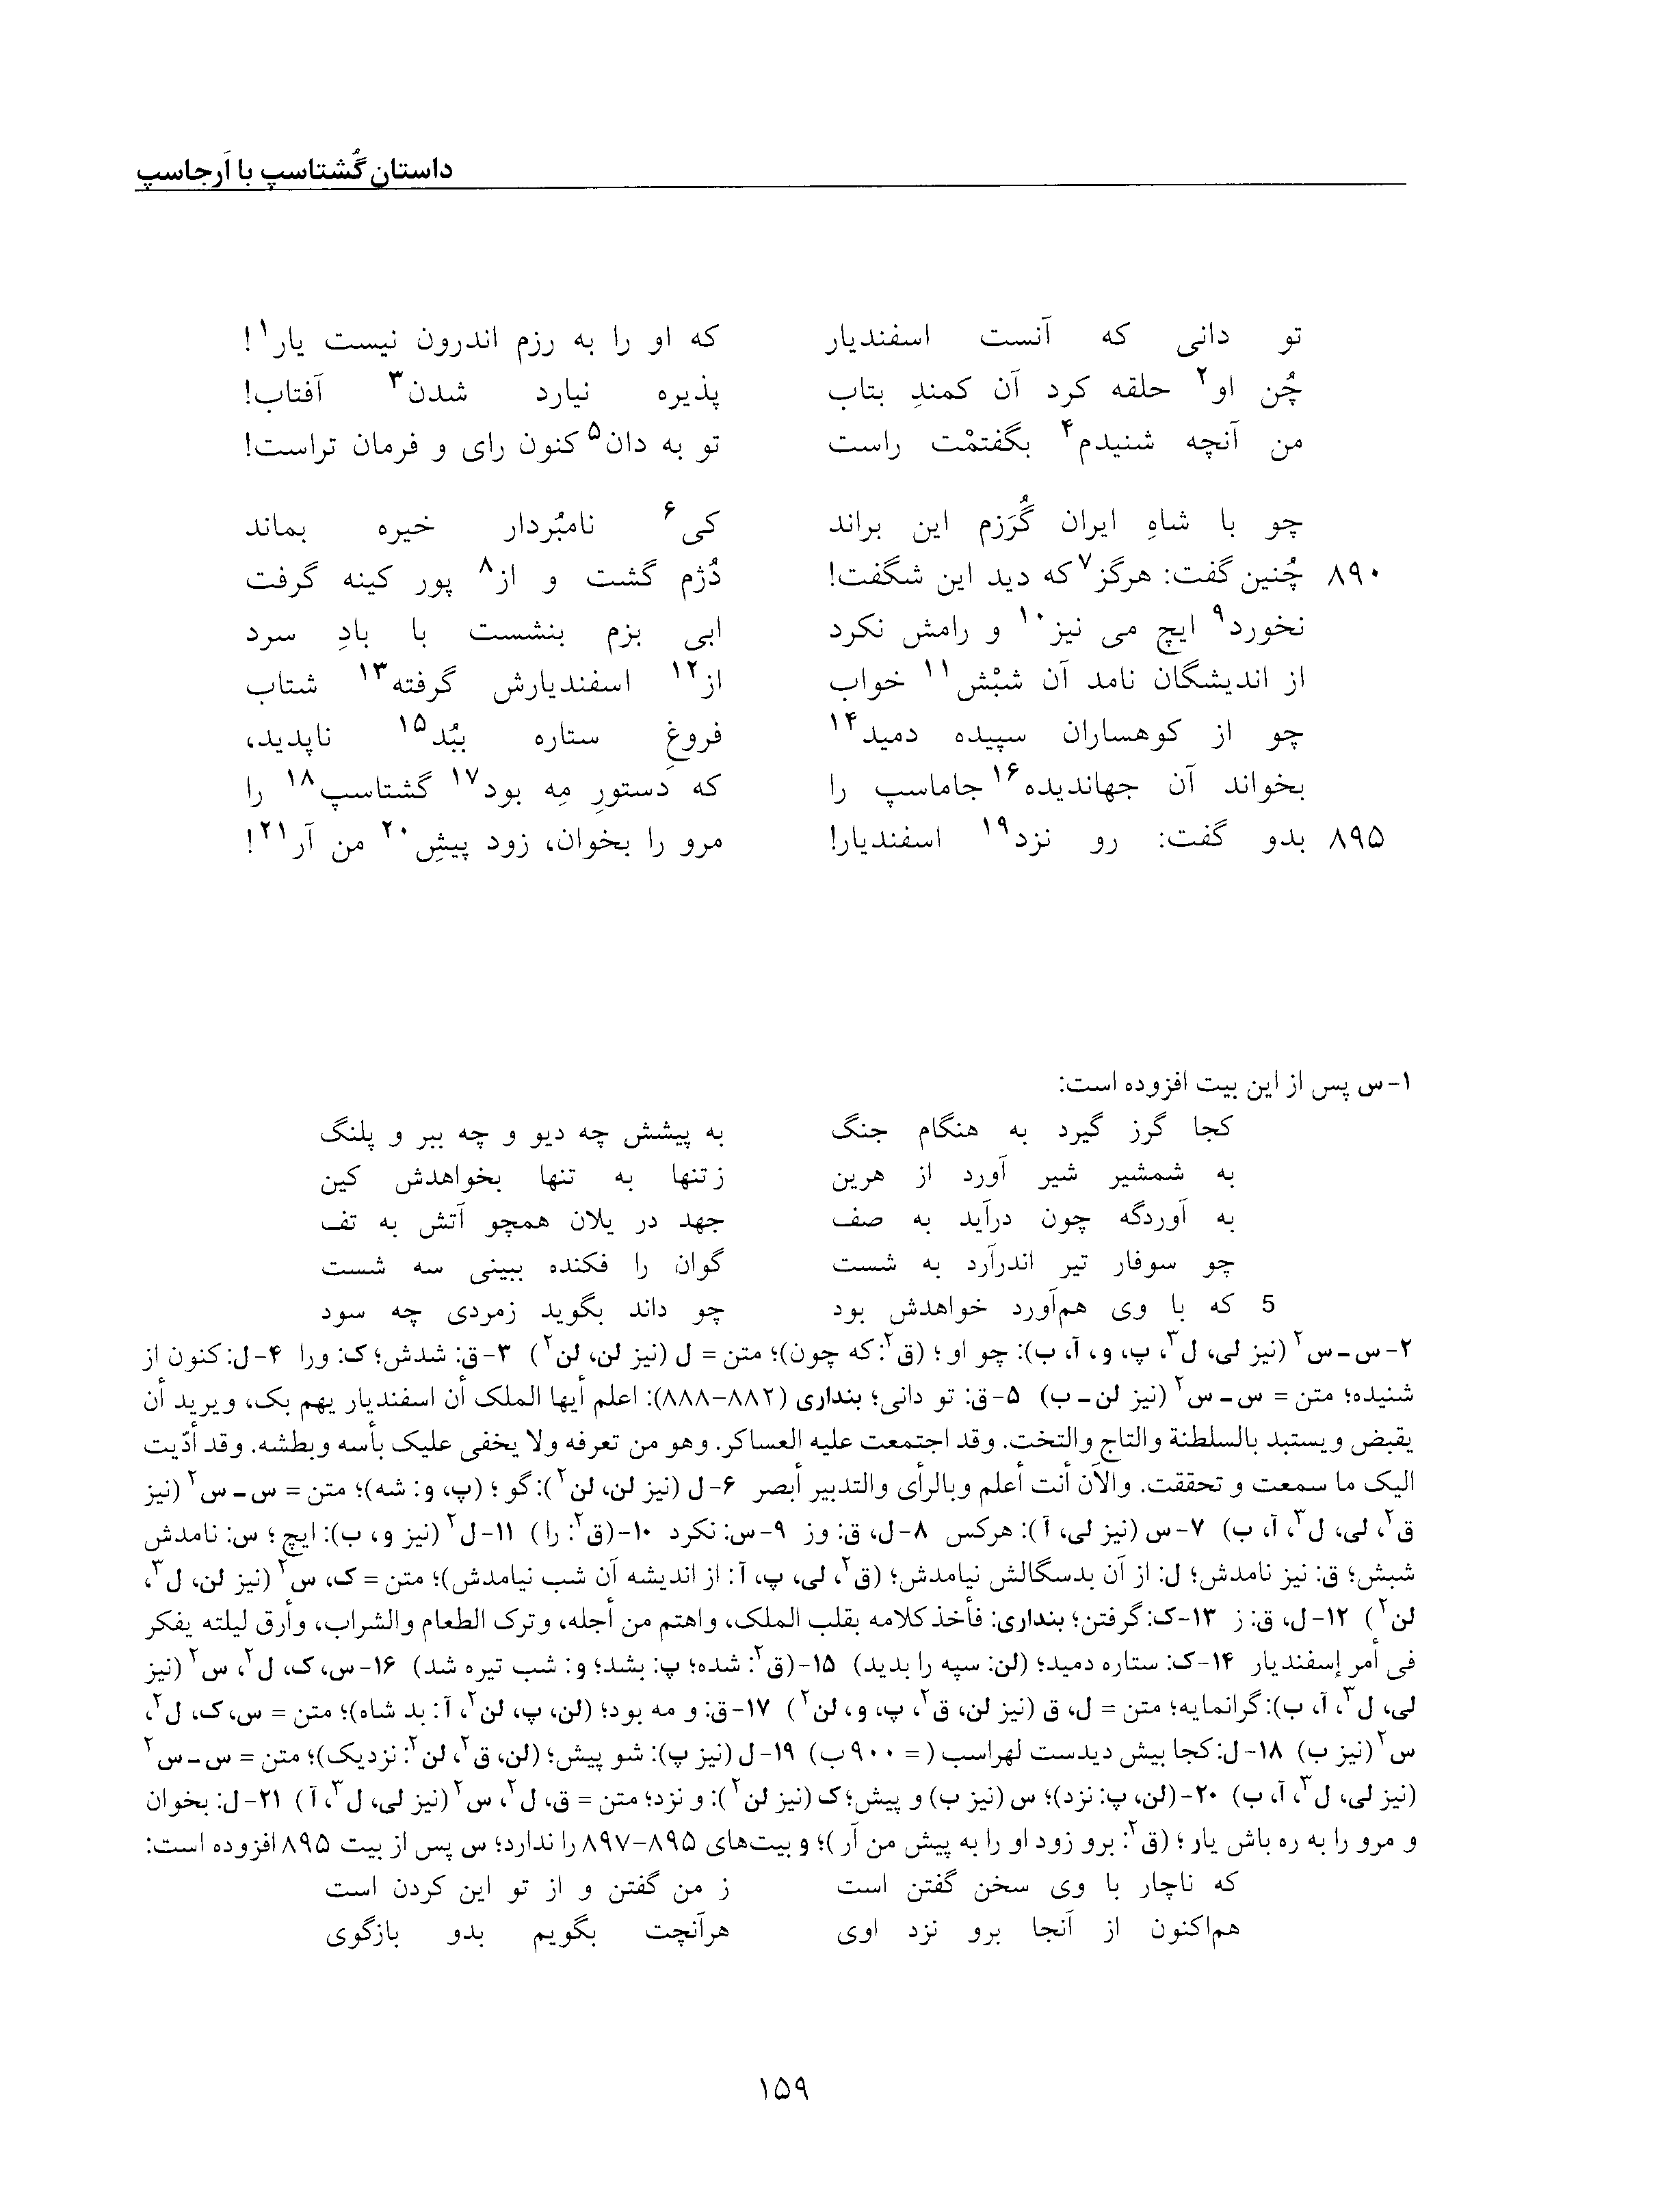 داستان گُشتاسپ با اَرجاسپ
تو دانی که آنست اسفندیار که او را به رزم اندرون نیست یار۱!
چُن او۲ حلقه کرد آن کمندِ بتاب پذیره نیارد شدن۳ آفتاب!
من آنچه شنیدم۴ بگفتمْت راست تو به دان۵ کنون رای و فرمان تراست!
چو با شاهِ ایران گُرَزم این براند کی۶ نامبُردار خیره بماند
۸۹۰ چُنین گفت: هرگز۷ که دید این شگفت! دُژم گشت و از۸ پور کینه گرفت
نخورد۹ ایچ می نیز۱۰ و رامش نکرد ابی بزم بنشست با بادِ سرد
از اندیشگان نامد آن شبْش۱۱ خواب از۱۲ اسفندیارش گرفته۱۳ شتاب
چو از کوهساران سپیده دمید۱۴ فروغِ ستاره ببُد۱۵ ناپدید،
بخواند آن جهاندیده۱۶ جاماسپ را که دستورِ مِه بود۱۷ گشتاسپ۱۸ را
۸۹۵ بدو گفت: رو نزد۱۹ اسفندیار! مرو را بخوان، زود پیشِ۲۰ من آر۲۱!
۱-س پس از این بیت افزوده است:
کجا گرز گیرد به هنگام جنگ به پیشش چه دیو و چه ببر و پلنگ
به شمشیر شیر آورد از هرین ز تنها به تنها بخواهدش کین
به آوردگه چون درآید به صف جهد در یلان همچو آتش به تف
چو سوفار تیر اندرآرد به شست گوان را فکنده ببینی سه شست
5 که با وی هم‌آورد خواهدش بود چو داند بگوید زمردی چه سود
۲-س-س۲ (نیز لی، ل۳، پ، و، آ، ب): چو او؛ (ق۲: که چون)؛ متن = ل (نیز لن، لن۲) ۳-ق: شدش؛ ک: ورا ۴-ل: کنون از
شنیده؛ متن = س-س۲ (نیز لن-ب) ۵-ق: تو دانی؛ بنداری (۸۸۲-۸۸۸): اعلم أیها الملک أن اسفندیار یهم بک، ویرید أن
یقبض ویستبد بالسلطنة والتاج والتخت. وقد اجتمعت علیه العساکر. وهو من تعرفه ولا یخفی علیک بأسه وبطشه. وقد أدّیت
الیک ما سمعت و تحققت. والآن أنت أعلم وبالرأی والتدبیر أبصر ۶-ل (نیز لن، لن۲): گو؛ (پ، و: شه)؛ متن = س-س۲ (نیز
ق۲، لی، ل۳، آ، ب) ۷-س (نیز لی، آ): هرکس ۸-ل، ق: وز ۹-س: نکرد ۱۰-(ق۲: را) ۱۱-ل۲ (نیز و، ب): ایچ؛ س: نامدش
شبش؛ ق: نیز نامدش؛ ل: از آن بدسگالش نیامدش؛ (ق۲، لی، پ، آ: از اندیشه آن شب نیامدش)؛ متن = ک، س۲ (نیز لن، ل۳،
لن۲) ۱۲-ل، ق: ز ۱۳-ک: گرفتن؛ بنداری: فأخذ کلامه بقلب الملک، واهتم من أجله، وترک الطعام والشراب، وأرق لیلته یفکر
فی أمر إسفندیار ۱۴-ک: ستاره دمید؛ (لن: سپه را بدید) ۱۵-(ق۲: شده؛ پ: بشد؛ و: شب تیره شد) ۱۶-س، ک، ل۲، س۲ (نیز
لی، ل۳، آ، ب): گرانمایه؛ متن = ل، ق (نیز لن، ق۲، پ، و، لن۲) ۱۷-ق: و مه بود؛ (لن، پ، لن۲، آ: بد شاه)؛ متن = س، ک، ل۲،
س۲ (نیز ب) ۱۸-ل: کجا بیش دیدست لهراسب (= ۹۰۰ ب) ۱۹-ل (نیز پ): شو پیش؛ (لن، ق۲، لن۲: نزدیک)؛ متن = س-س۲
(نیز لی، ل۳، آ، ب) ۲۰-(لن، پ: نزد)؛ س (نیز ب) و پیش؛ ک (نیز لن۲): و نزد؛ متن = ق، ل۲، س۲ (نیز لی، ل۳، آ) ۲۱-ل: بخوان
و مرو را به ره باش یار؛ (ق۲: برو زود او را به پیش من آر)؛ و بیت‌های ۸۹۵-۸۹۷ را ندارد؛ س پس از بیت ۸۹۵ افزوده است:
که ناچار با وی سخن گفتن است ز من گفتن و از تو این کردن است
هم‌اکنون از آنجا برو نزد اوی هرآنچت بگویم بدو بازگوی
۱۵۹